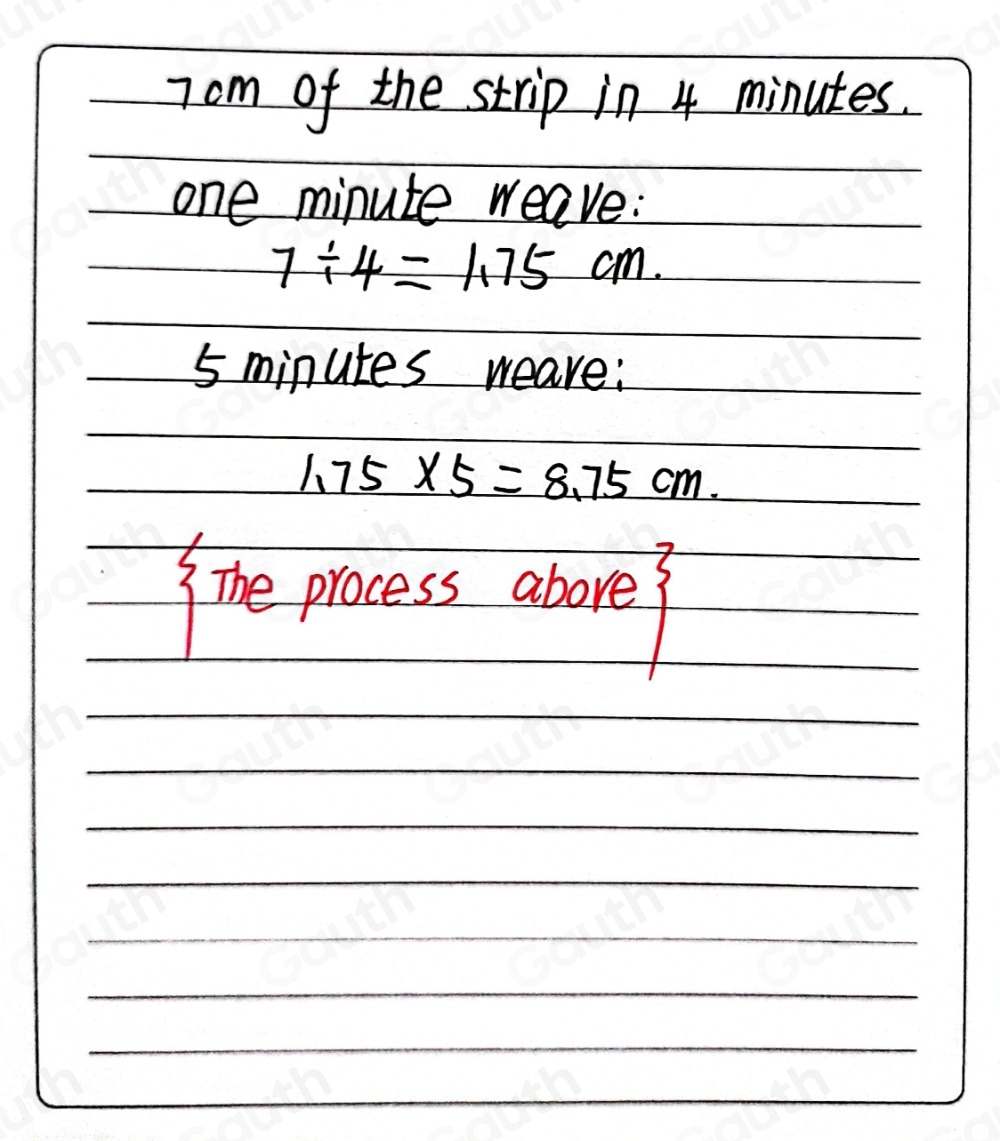 7cm of the strip in 4 minutes.
one minute weave:
7 ÷ 4 = 1.75 cm.
5 minutes weave:
1.75 × 5 = 8.75 cm.
{ The process above }
Gauth